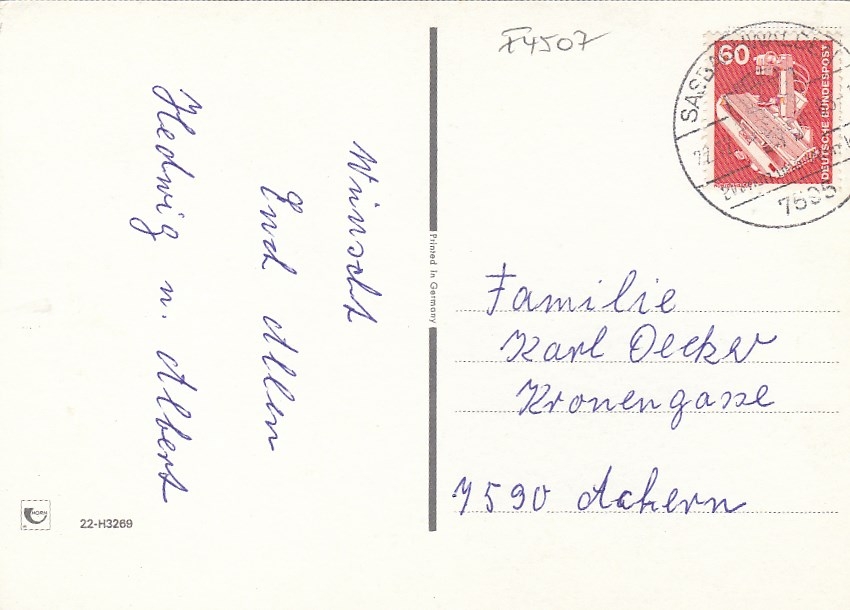 Wünscht
Euch Allen
Hedwig u. Albert
HORN
22-H3269
Printed in Germany
F4507
60
DEUTSCHE BUNDESPOST
7595
Familie
Karl Decker
Kronengasse
7590 Achern